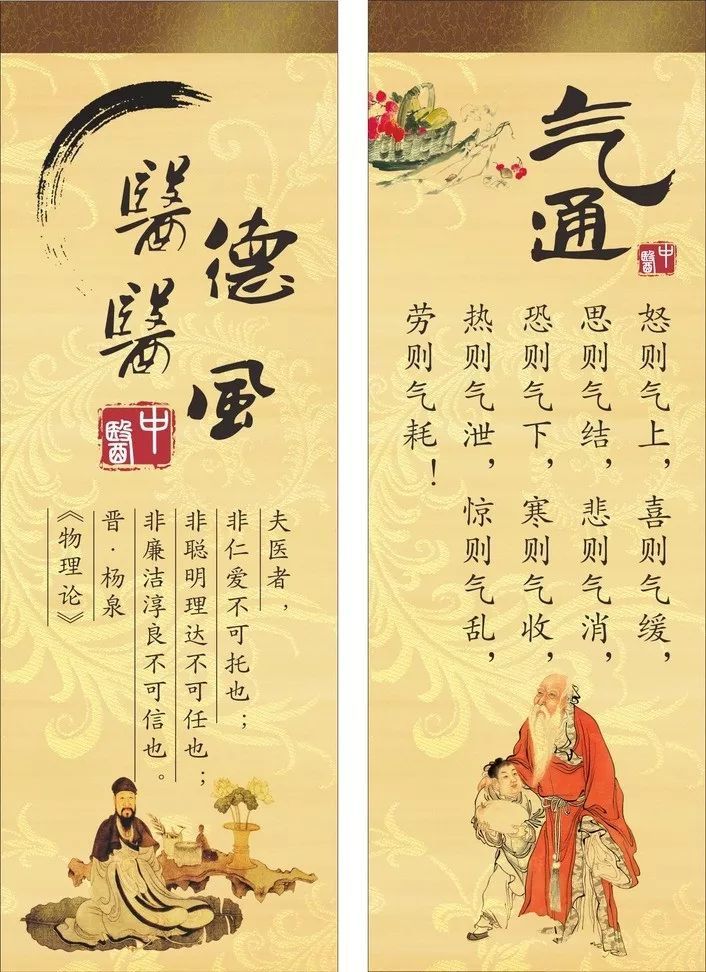 醫德
醫風
中醫
夫医者，
非仁爱不可托也；
非聪明理达不可任也；
非廉洁淳良不可信也。
晋·杨泉
《物理论》
气通
中醫
怒则气上，喜则气缓，
思则气结，悲则气消，
恐则气下，寒则气收，
热则气泄，惊则气乱，
劳则气耗！